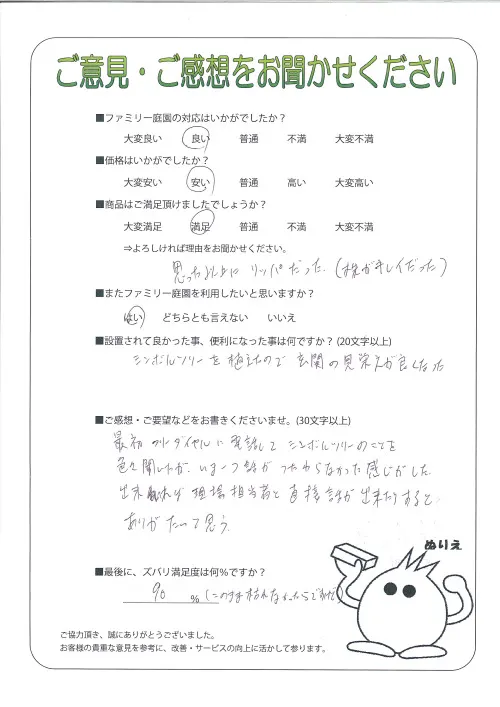 ご意見・ご感想をお聞かせください
■ファミリー庭園の対応はいかがでしたか？
大変良い 良い 普通 不満 大変不満
■価格はいかがでしたか？
大変安い 安い 普通 高い 大変高い
■商品はご満足頂けましたでしょうか？
大変満足 満足 普通 不満 大変不満
⇒よろしければ理由をお聞かせください。
思った以上に リッパだった。(株がキレイだった)
■またファミリー庭園を利用したいと思いますか？
はい どちらとも言えない いいえ
■設置されて良かった事、便利になった事は何ですか？(20文字以上)
シンボルツリーを植えたので 玄関の見栄えが良くなった
■ご感想・ご要望などをお書きくださいませ。(30文字以上)
最初 フリーダイヤルに電話して シンボルツリーのことを
色々聞いたが、いま一つ話が つたわらなかった感じがした。
出来れば 現場担当者と 直接話が 出来たりすると
ありがたいって思う。
ぬりえ
■最後に、ズバリ満足度は何%ですか？
90 % (このまま枯れなかったら
ご協力頂き、誠にありがとうございました。
お客様の貴重な意見を参考に、改善・サービスの向上に活かして参ります。